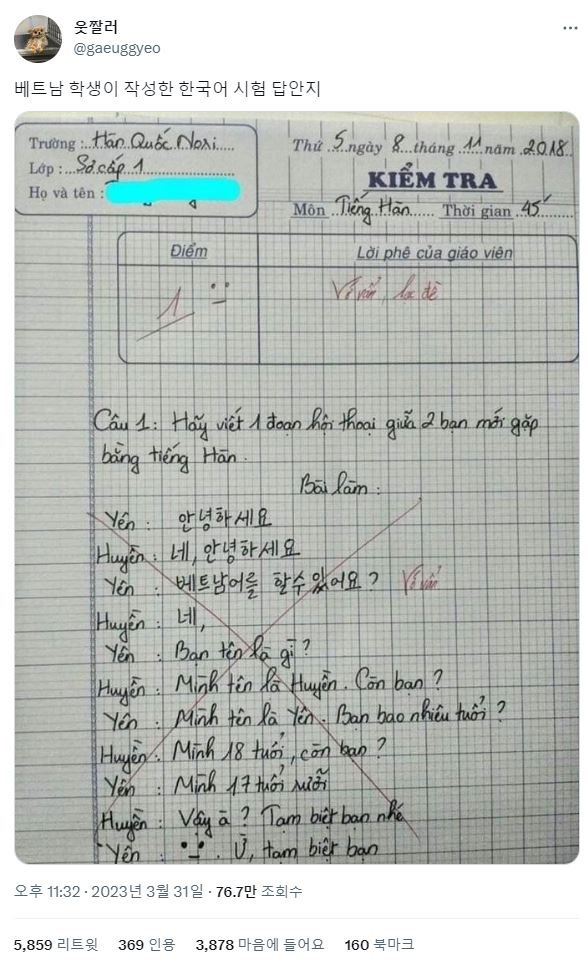 웃짤러
@gaeuggyeo
베트남 학생이 작성한 한국어 시험 답안지
Trường :.. Hàn Quốc Nori.....
Lớp :... Sơ cấp 1.................
Họ và tên :
Thứ .5. ngày .8. tháng .11. năm .2018.
KIỂM TRA
Môn .. Tiếng Hàn..... Thời gian .45'......
Điểm
Lời phê của giáo viên
1
Vớ vẩn, lạc đề
Câu 1: Hãy viết 1 đoạn hội thoại giữa 2 bạn mới gặp
bằng tiếng Hàn.
Bài làm :
Yên : 안녕하세요
Huyền : 네, 안녕하세요
Yên : 베트남어를 할 수 있어요? Vớ vẩn
Huyền : 네,
Yên : Bạn tên là gì?
Huyền : Mình tên là Huyền. Còn bạn?
Yên : Mình tên là Yên. Bạn bao nhiêu tuổi?
Huyền : Mình 18 tuổi, còn bạn?
Yên : Mình 17 tuổi rưỡi
Huyền : Vậy à? Tạm biệt bạn nhé
Yên : . Ừ, tạm biệt bạn
오후 11:32 · 2023년 3월 31일 · 76.7만 조회수
5,859 리트윗 369 인용 3,878 마음에 들어요 160 북마크